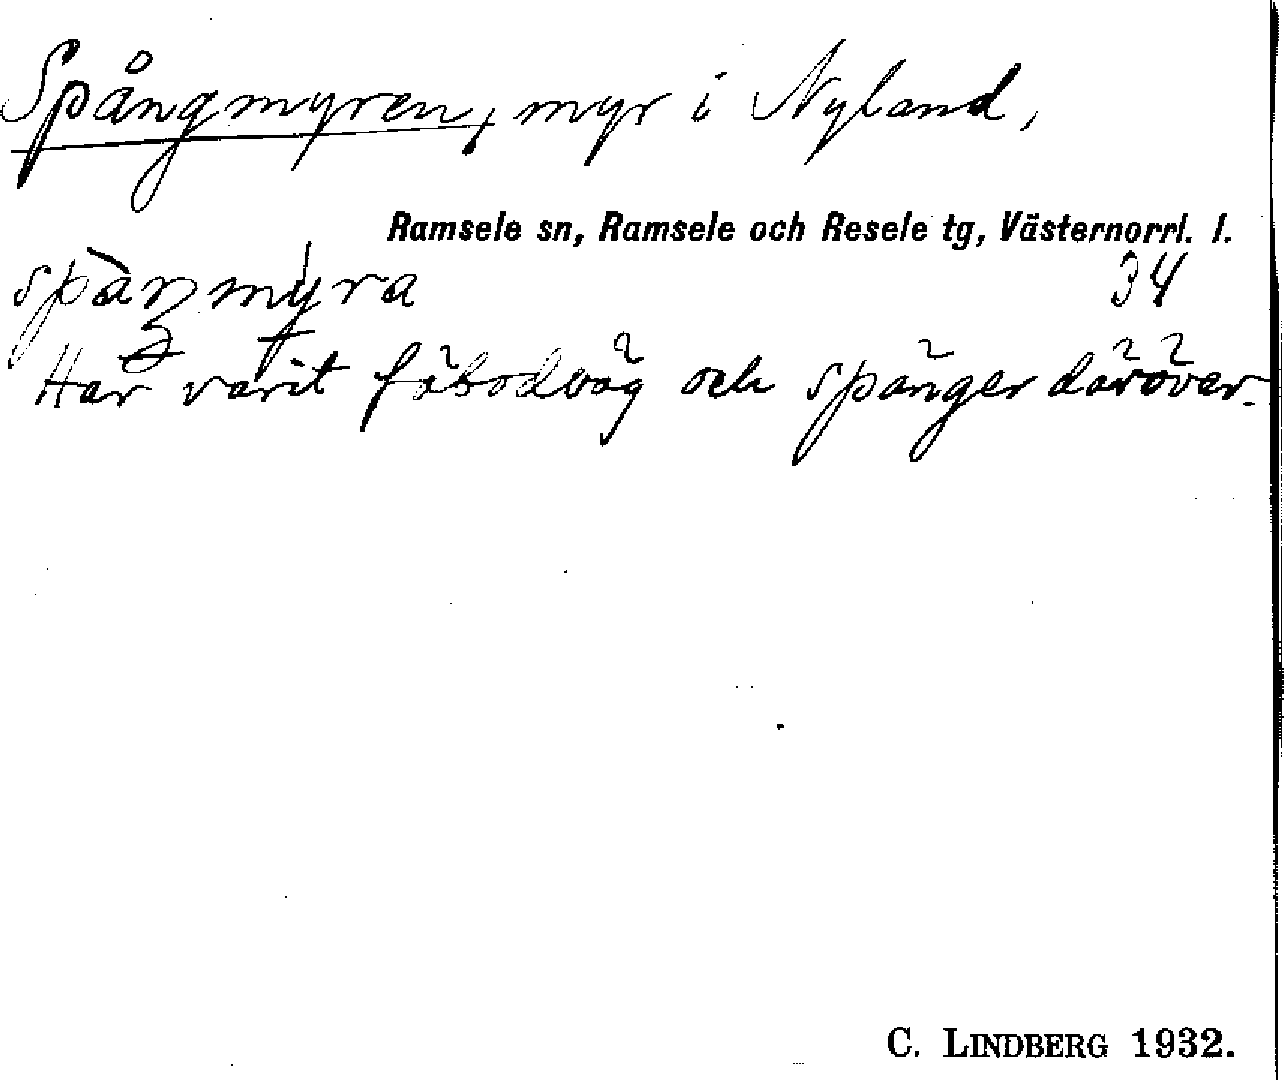 Spångmyren, myr i Nyland,
Ramsele sn, Ramsele och Resele tg, Västernorrl. l.
34
Har varit fäbodväg och spänger däröver.
C. LINDBERG 1932.